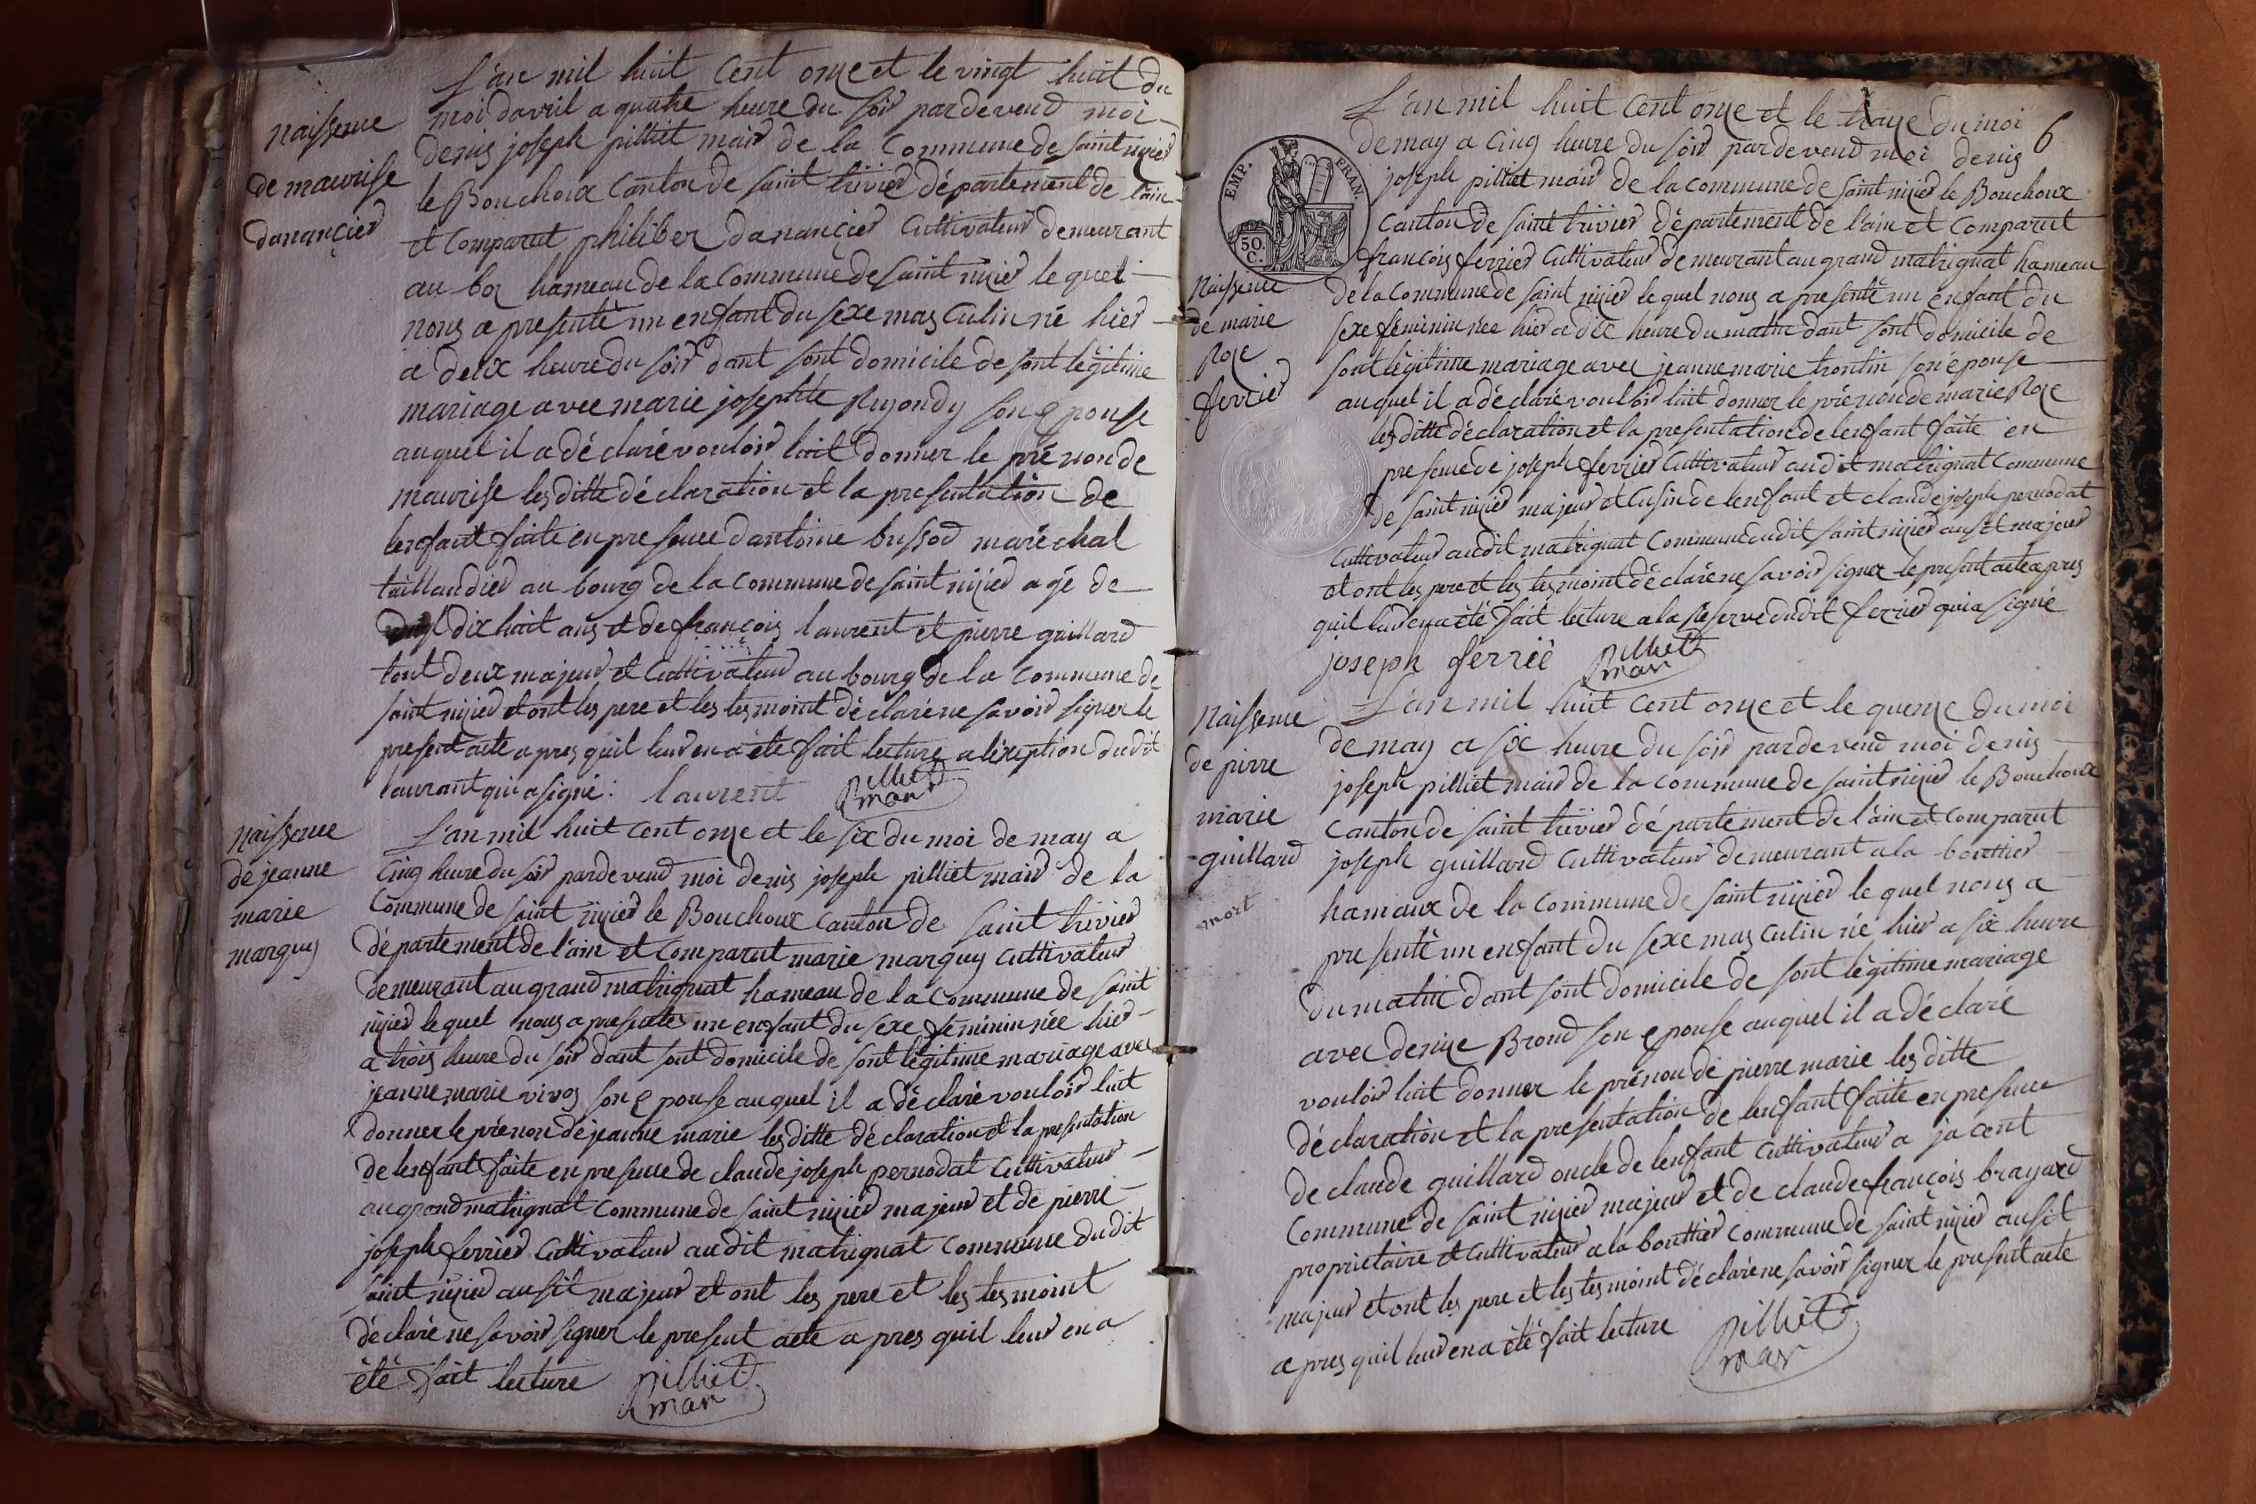 L'an mil huit cent onze et le vingt huit du
moi davril a quatre heure du soir pardevend moi
denis joseph pilliet mair de la Commune de saint nizier
le Bouchoux canton de saint trivier département de l'ain
et comparut philiber danancier cultivateur demeurant
au boz hameau de la Commune de saint nizier le quel
nous a presenté un enfant du sexe masculin né hier
a deux heure du soir dant sont domicile de sont légitime
mariage avec marie josephte Ruyondy son epouse
auquel il a déclaré vouloir luit donner le prénon de
maurise lesditte déclaration et la presentation de
lenfant faite en presence dantoine bussod maréchal
taillandier au bourg de la commune de saint nizier agé de
dix huit ans et de françois laurent et pierre guillard
tout deux majeur et cultivateur au bourg de la commune de
saint nizier et ont les pere et les tesmoint déclaré ne savoir signer le
present acte a pres quil leur en a été fait lecture a léxeption dudit
laurant qui a signé : laurent pilliet
mair
naissence
de maurise
danancier
L'an mil huit cent onze et le six du moi de may a
cinq heure du soir pardevend moi denis joseph pilliet mair de la
Commune de saint nizier le Bouchoux canton de saint trivier
département de l'ain et comparut marie marguy cultivateur
demeurant au grand matrignat hameau de la commune de saint
nizier le quel nous a presenté un enfant du sexe féminin née hier
a trois heure du soir dant sont domicile de sont légitime mariage avec
jeanne marie vivos son epouse auquel il a déclaré vouloir luit
donner le prénon de jeanne marie lesditte déclaration et la presentation
de lenfant faite en presence de claude joseph pernodat cultivateur
au grand matrignat commune de saint nizier majeur et de pierre
joseph ferrier cultivateur audit matrignat commune dudit
saint nizier ausit majeur et ont les pere et les tesmoint
déclaré ne savoir signer le present acte a pres quil leur en a
été fait lecture pilliet
mair
naissence
de jeanne
marie
marguy
6
L'an mil huit cent onze et le traize du moi
de may a cinq heure du soir pardevend moi denis
joseph pilliet mair de la commune de saint nizier le Bouchoux
canton de saint trivier département de l'ain et comparut
françois ferrier cultivateur demeurant au grand matrignat hameau
de la commune de saint nizier le quel nous a presenté un enfant du
sexe féminin née hier a dix heure du matin dant sont domicile de
sont légitime mariage avec jeanne marie trontin son epouse
auquel il a déclaré vouloir luit donner le prénon de marie Roze
lesditte déclaration et la presentation de lenfant faite en
presence de joseph ferrier cultivateur audit matrignat commune
de saint nizier majeur et cusin de lenfant et claude joseph pernodat
cultivateur audit matrignat commune dudit saint nizier ausit majeur
et ont les pere et les tesmoint déclaré ne savoir signer le present acte a pres
quil leur en a été fait lecture a la Reserve dudit ferrier qui a signé
joseph férrié pilliet
mair
EMP. FRAN.
50.
C.
naissence
de marie
Roze
ferrier
L'an mil huit cent onze et le quenze du moi
de may a six heure du soir pardevend moi denis
joseph pilliet mair de la commune de saint nizier le Bouchoux
canton de saint trivier département de l'ain et comparut
joseph guillard cultivateur demeurant a la bouttier
hamaux de la commune de saint nizier le quel nous a
presenté un enfant du sexe masculin né hier a six heure
du matin dant sont domicile de sont légitime mariage
avec denize Brond son epouse auquel il a déclaré
vouloir luit donner le prénon de pierre marie lesditte
déclaration et la presentation de lenfant faite en presence
de claude guillard oncle de lenfant cultivateur a jacent
commune de saint nizier majeur et de claude françois brayard
proprietaire et cultivateur a la bouttier commune de saint nizier ausit
majeur et ont les pere et les tesmoint déclaré ne savoir signer le present acte
a pres quil leur en a été fait lecture pilliet
mair
naissence
de pierre
marie
guillard
mort